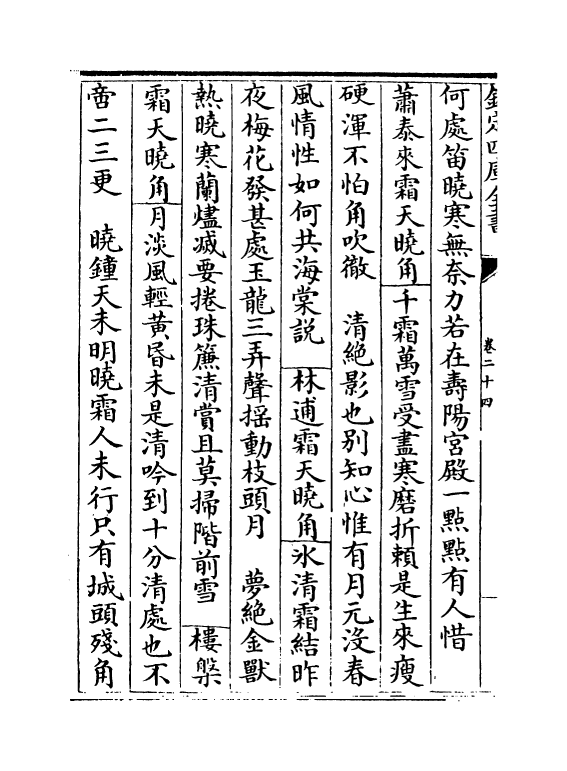 欽定四庫全書
卷二十四
何處笛曉寒無奈力若在壽陽宮殿一點點有人惜
蕭泰來霜天曉角千霜萬雪受盡寒磨折賴是生來瘦
硬渾不怕角吹徹　清絶影也別知心惟有月元沒春
風情性如何共海棠説　林逋霜天曉角氷清霜結昨
夜梅花發甚處玉龍三弄聲揺動枝頭月　夢絶金獸
熱曉寒蘭燼滅要捲珠簾清賞且莫掃階前雪　樓槃
霜天曉角月淡風輕黄昬未是清吟到十分清處也不
啻二三更　曉鐘天未明曉霜人未行只有城頭殘角